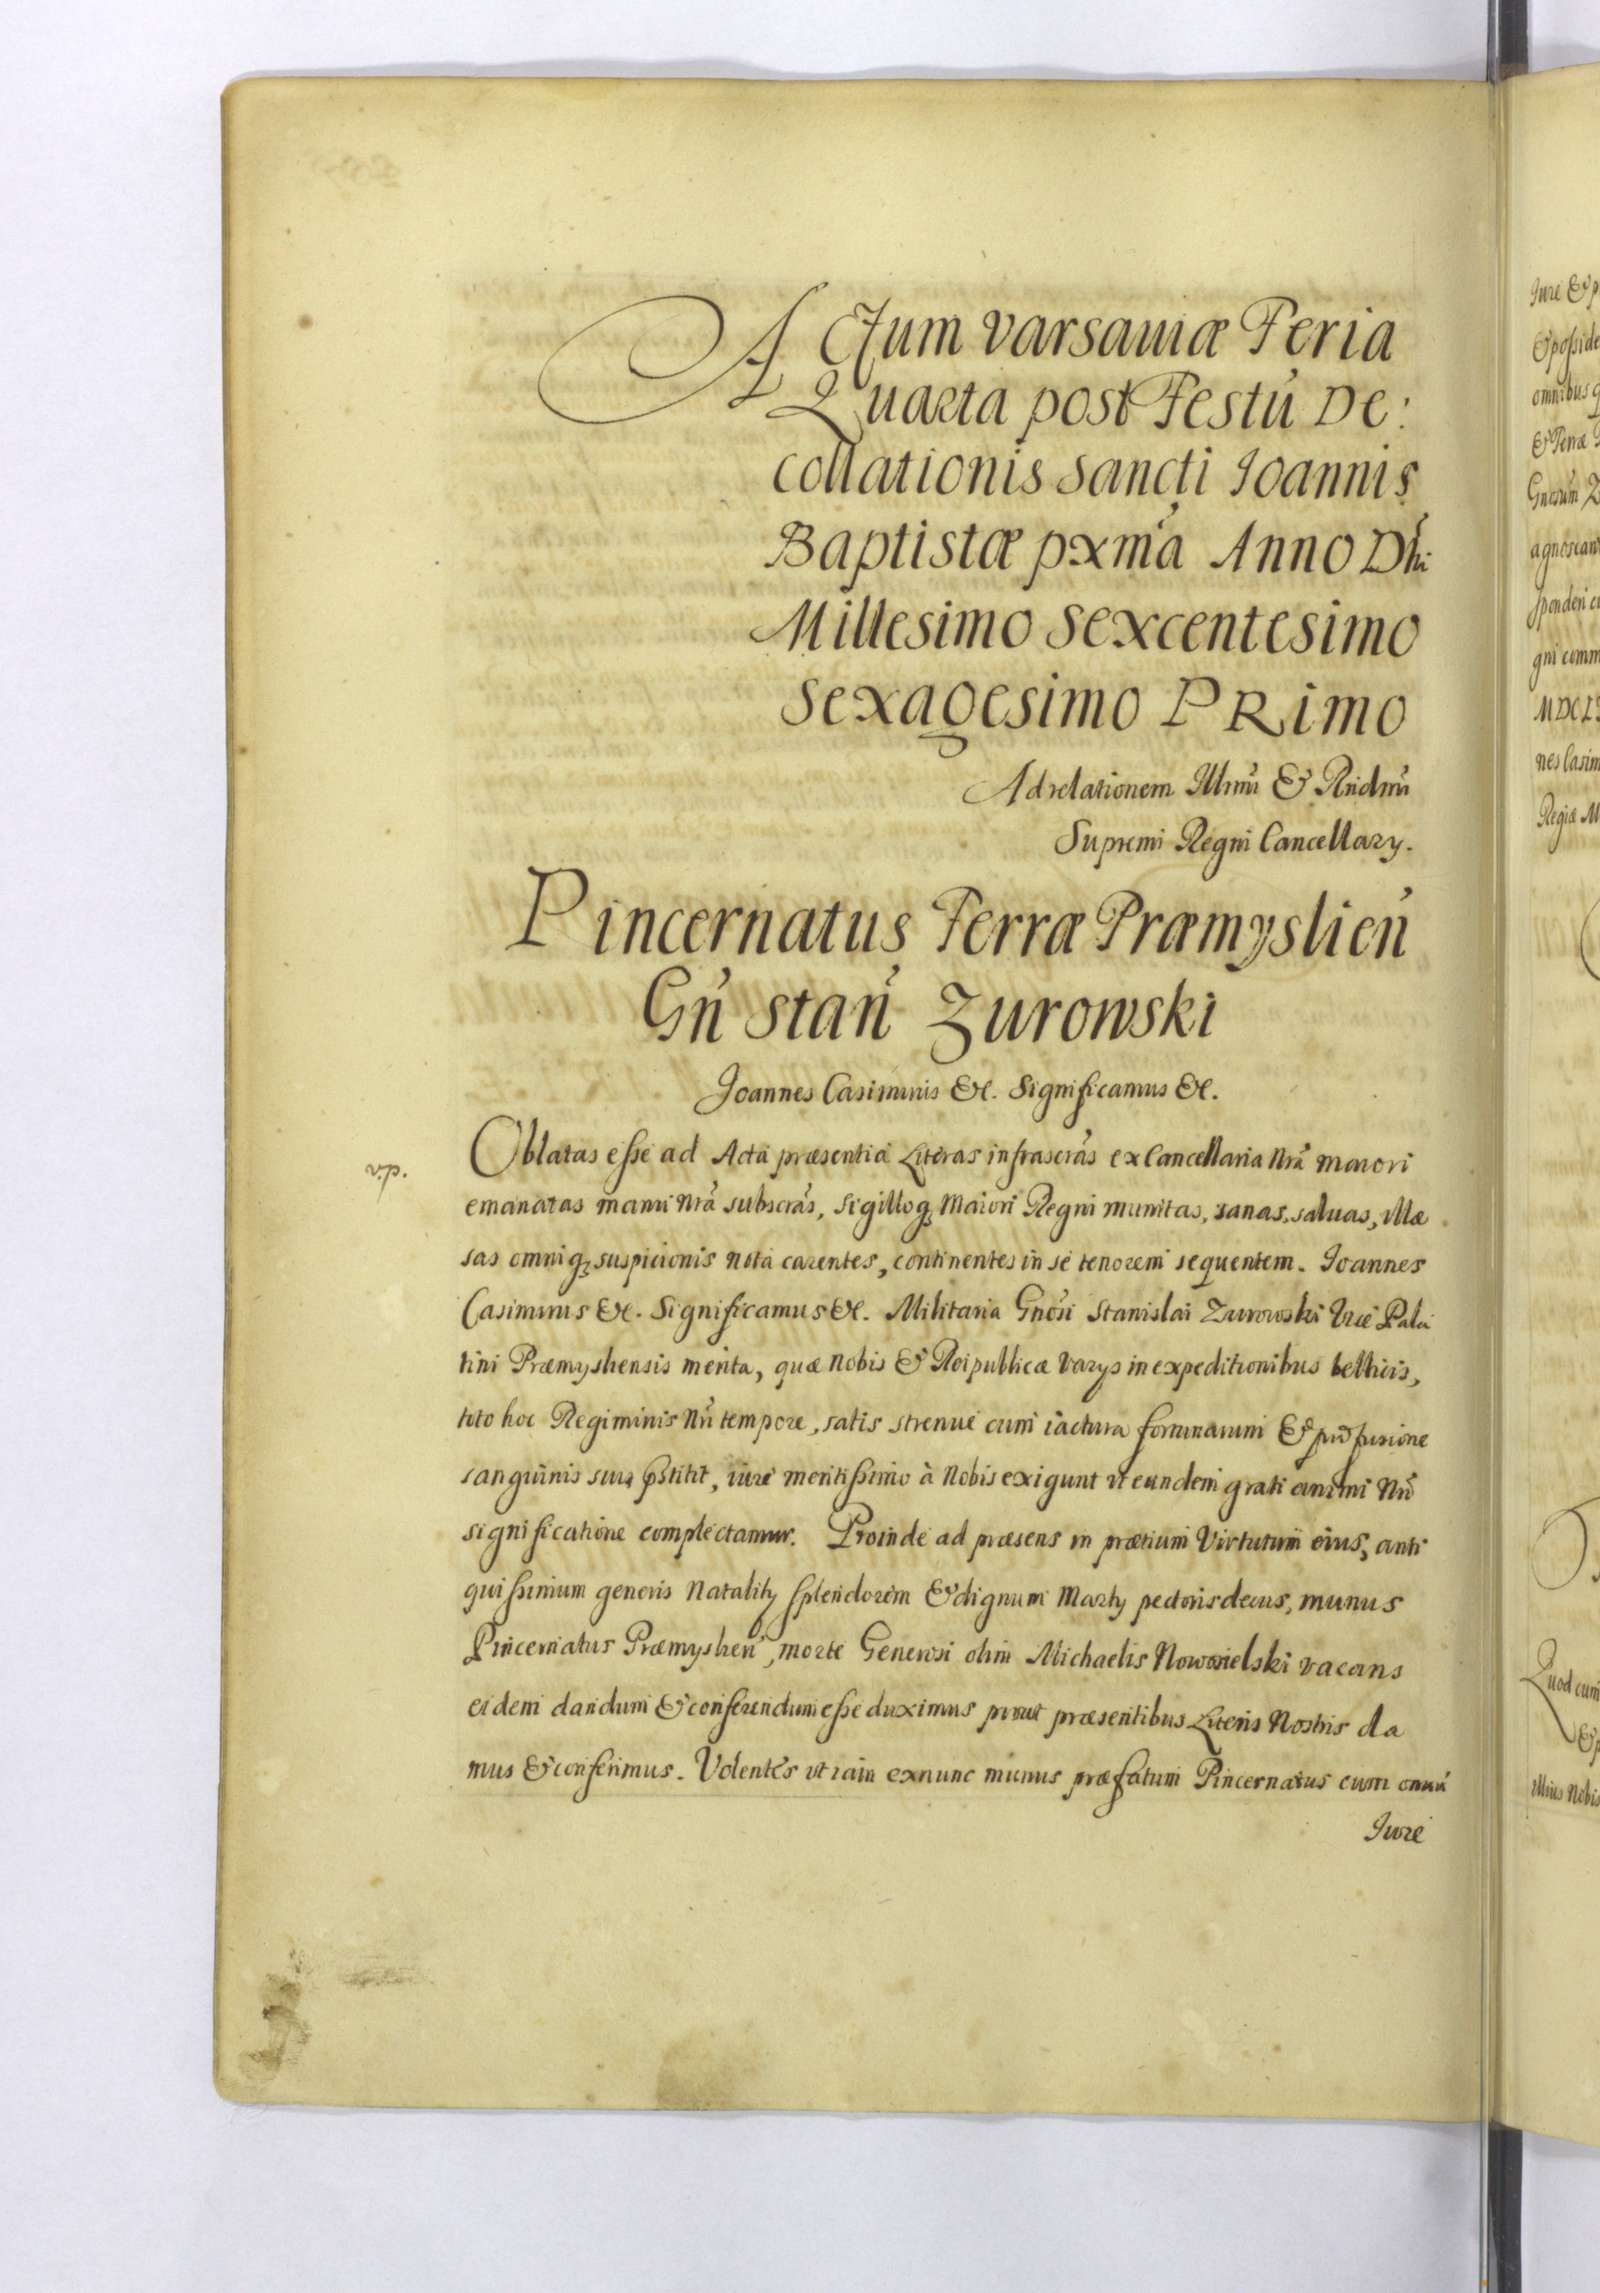 ACtum varsaviæ Feria
Quarta post Festu᷃ De:
collationis sancti Joannis
Baptistæ pxm᷃a Anno Dn᷃i
Millesimo sexcentesimo
sexagesimo PRimo
Ad relationem Illmi᷃ & Rndmi᷃
Supremi Regni Cancellary.
Pincernatus Terræ Præmyslien᷃
Gn᷃ stan᷃ Zurowski
Joannes Casimirus &c. Significamus &c.
Oblatas esse ad Acta præsentia Literas infrascra᷃s ex Cancellaria Nra᷃ maiori
emanatas manu Nra᷃ subscra᷃s, sigilloqꝫ Maiori Regni munitas, sanas, saluas, illæ
sas omniqꝫ suspicionis nota carentes, continentes in se tenorem sequentem. Joannes
Casimirus &c. Significamus &c. Militaria Gnos᷃i Stanislai Zurowski Vice Pala
tini Præmysliensis merita, quæ Nobis & Reipublicæ Varys in expeditionibus bellicis,
toto hoc Regiminis Nri᷃ tempore, satis strenue cum iactura fortunarum & profusione
sanguinis sui, pstitit, iure meritissimo à Nobis exigunt vt eundem grati animi Nri᷃
significatione complectamur. Proinde ad præsens in prætium Virtutum eius, anti
quissimum generis Natality splendorem & dignum Marty pectoris decus, munus
Pincernatus Præmyslien᷃, morte Generosi olim Michaelis Nowosielski vacans
eidem dandum & conferendum esse duximus prout præsentibus Literis Nostris da
mus & conferimus. Volentes vt iam exnunc munus præfatum Pincernatus cum omni
Jure